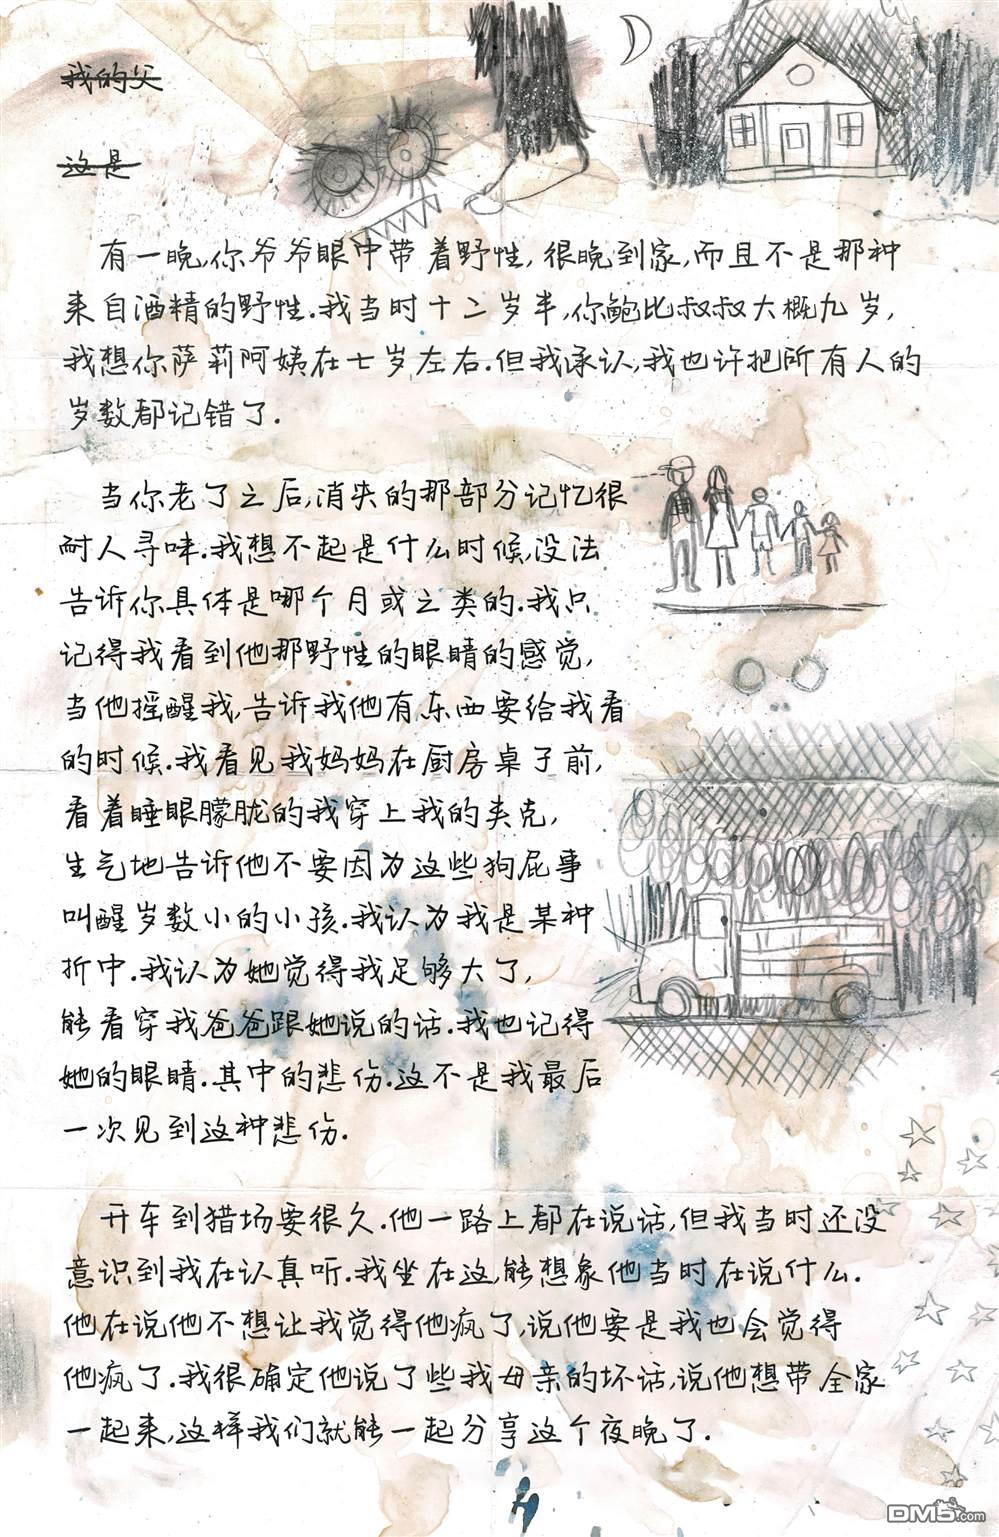 我的父
这是
有一晚,你爷爷眼中带着野性,很晚到家,而且不是那种
来自酒精的野性.我当时十二岁半,你鲍比叔叔大概九岁,
我想你萨莉阿姨在七岁左右.但我承认,我也许把所有人的
岁数都记错了.
当你老了之后,消失的那部分记忆很
耐人寻味.我想不起是什么时候,没法
告诉你具体是哪个月或之类的.我只
记得我看到他那野性的眼睛的感觉,
当他摇醒我,告诉我他有东西要给我看
的时候.我看见我妈妈在厨房桌子前,
看着睡眼朦胧的我穿上我的夹克,
生气地告诉他不要因为这些狗屁事
叫醒岁数小的小孩.我认为我是某种
折中.我认为她觉得我足够大了,
能看穿我爸爸跟她说的话.我也记得
她的眼睛.其中的悲伤.这不是我最后
一次见到这种悲伤.
开车到猎场要很久.他一路上都在说话,但我当时还没
意识到我在认真听.我坐在这,能想象他当时在说什么.
他在说他不想让我觉得他疯了,说他要是我也会觉得
他疯了.我很确定他说了些我母亲的坏话,说他想带全家
一起来,这样我们就能一起分享这个夜晚了.
DM5.com